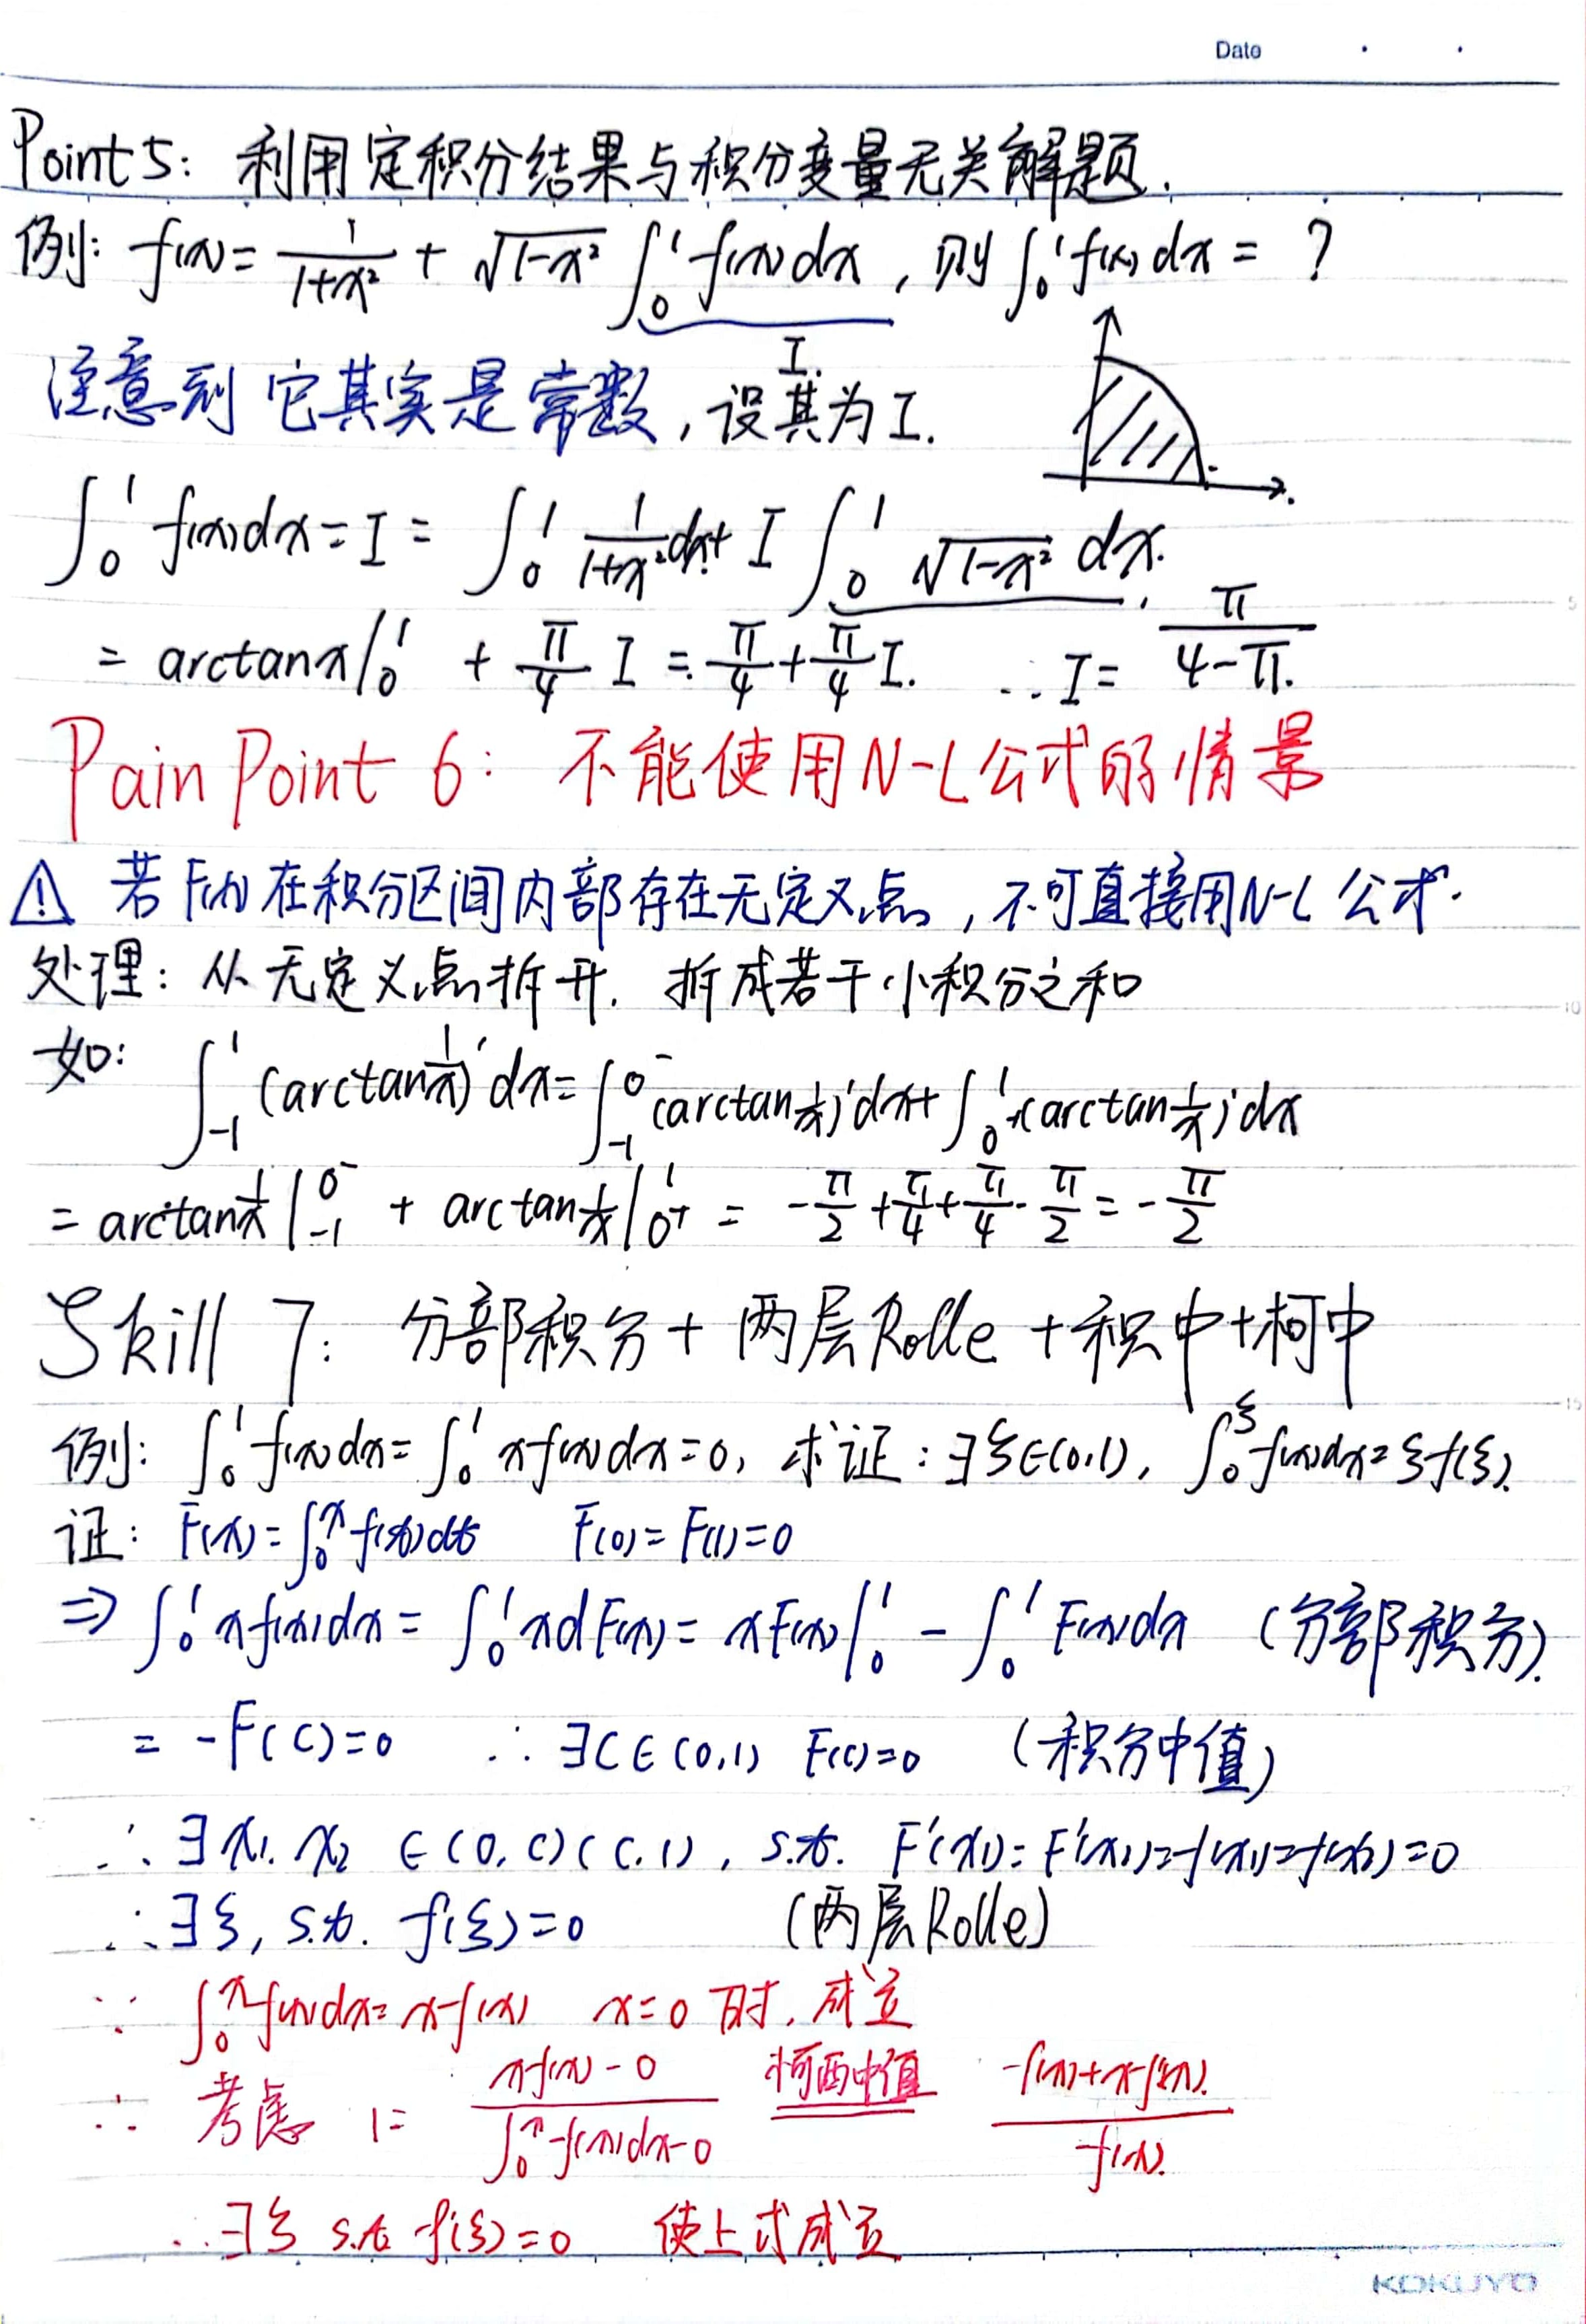 Date
Point 5: 利用定积分结果与积分变量无关解题.
例: f(x) = 1/(1+x²) + √(1-x²) ∫₀¹ f(x)dx, 则 ∫₀¹ f(x)dx = ?
I.
注意到它其实是常数, 设其为I.
∫₀¹ f(x)dx = I = ∫₀¹ 1/(1+x²) dx + I ∫₀¹ √(1-x²) dx.
= arctanx|₀¹ + π/4 I = π/4 + π/4 I. ∴ I = π/(4-π).
Pain Point 6: 不能使用N-L公式的情景
⚠ 若F(x)在积分区间内部存在无定义点, 不可直接用N-L公式.
处理: 从无定义点拆开. 拆成若干小积分之和
如: ∫₋₁¹ (arctan 1/x)' dx = ∫₋₁^0⁻ (arctan 1/x)' dx + ∫₀₊¹ (arctan 1/x)' dx
= arctan 1/x |₋₁^0⁻ + arctan 1/x |₀₊¹ = -π/2 + π/4 + π/4 - π/2 = -π/2
Skill 7: 分部积分 + 两层Rolle + 积中 + 柯中
例: ∫₀¹ f(x)dx = ∫₀¹ xf(x)dx = 0, 求证: ∃ξ∈(0,1), ∫₀^ξ f(x)dx = ξf(ξ).
证: F(x) = ∫₀ˣ f(t)dt F(0) = F(1) = 0
⇒ ∫₀¹ xf(x)dx = ∫₀¹ xdF(x) = xF(x)|₀¹ - ∫₀¹ F(x)dx (分部积分).
= -F(C) = 0 ∴ ∃C∈(0,1) F(C) = 0 (积分中值)
∴ ∃x₁, x₂ ∈ (0,C)(C,1), s.t. F'(x₁) = F'(x₂) = f(x₁) = f(x₂) = 0
∴ ∃ξ, s.t. f'(ξ) = 0 (两层Rolle)
∵ ∫₀ˣ f(x)dx = xf(x) x=0时, 成立
∴ 考虑 1 = (xf(x) - 0)/(∫₀ˣ f(x)dx - 0) 柯西中值 (f(x) + xf'(x))/f(x).
∴ ∃ξ s.t. f'(ξ) = 0 使上式成立
KOKUYO